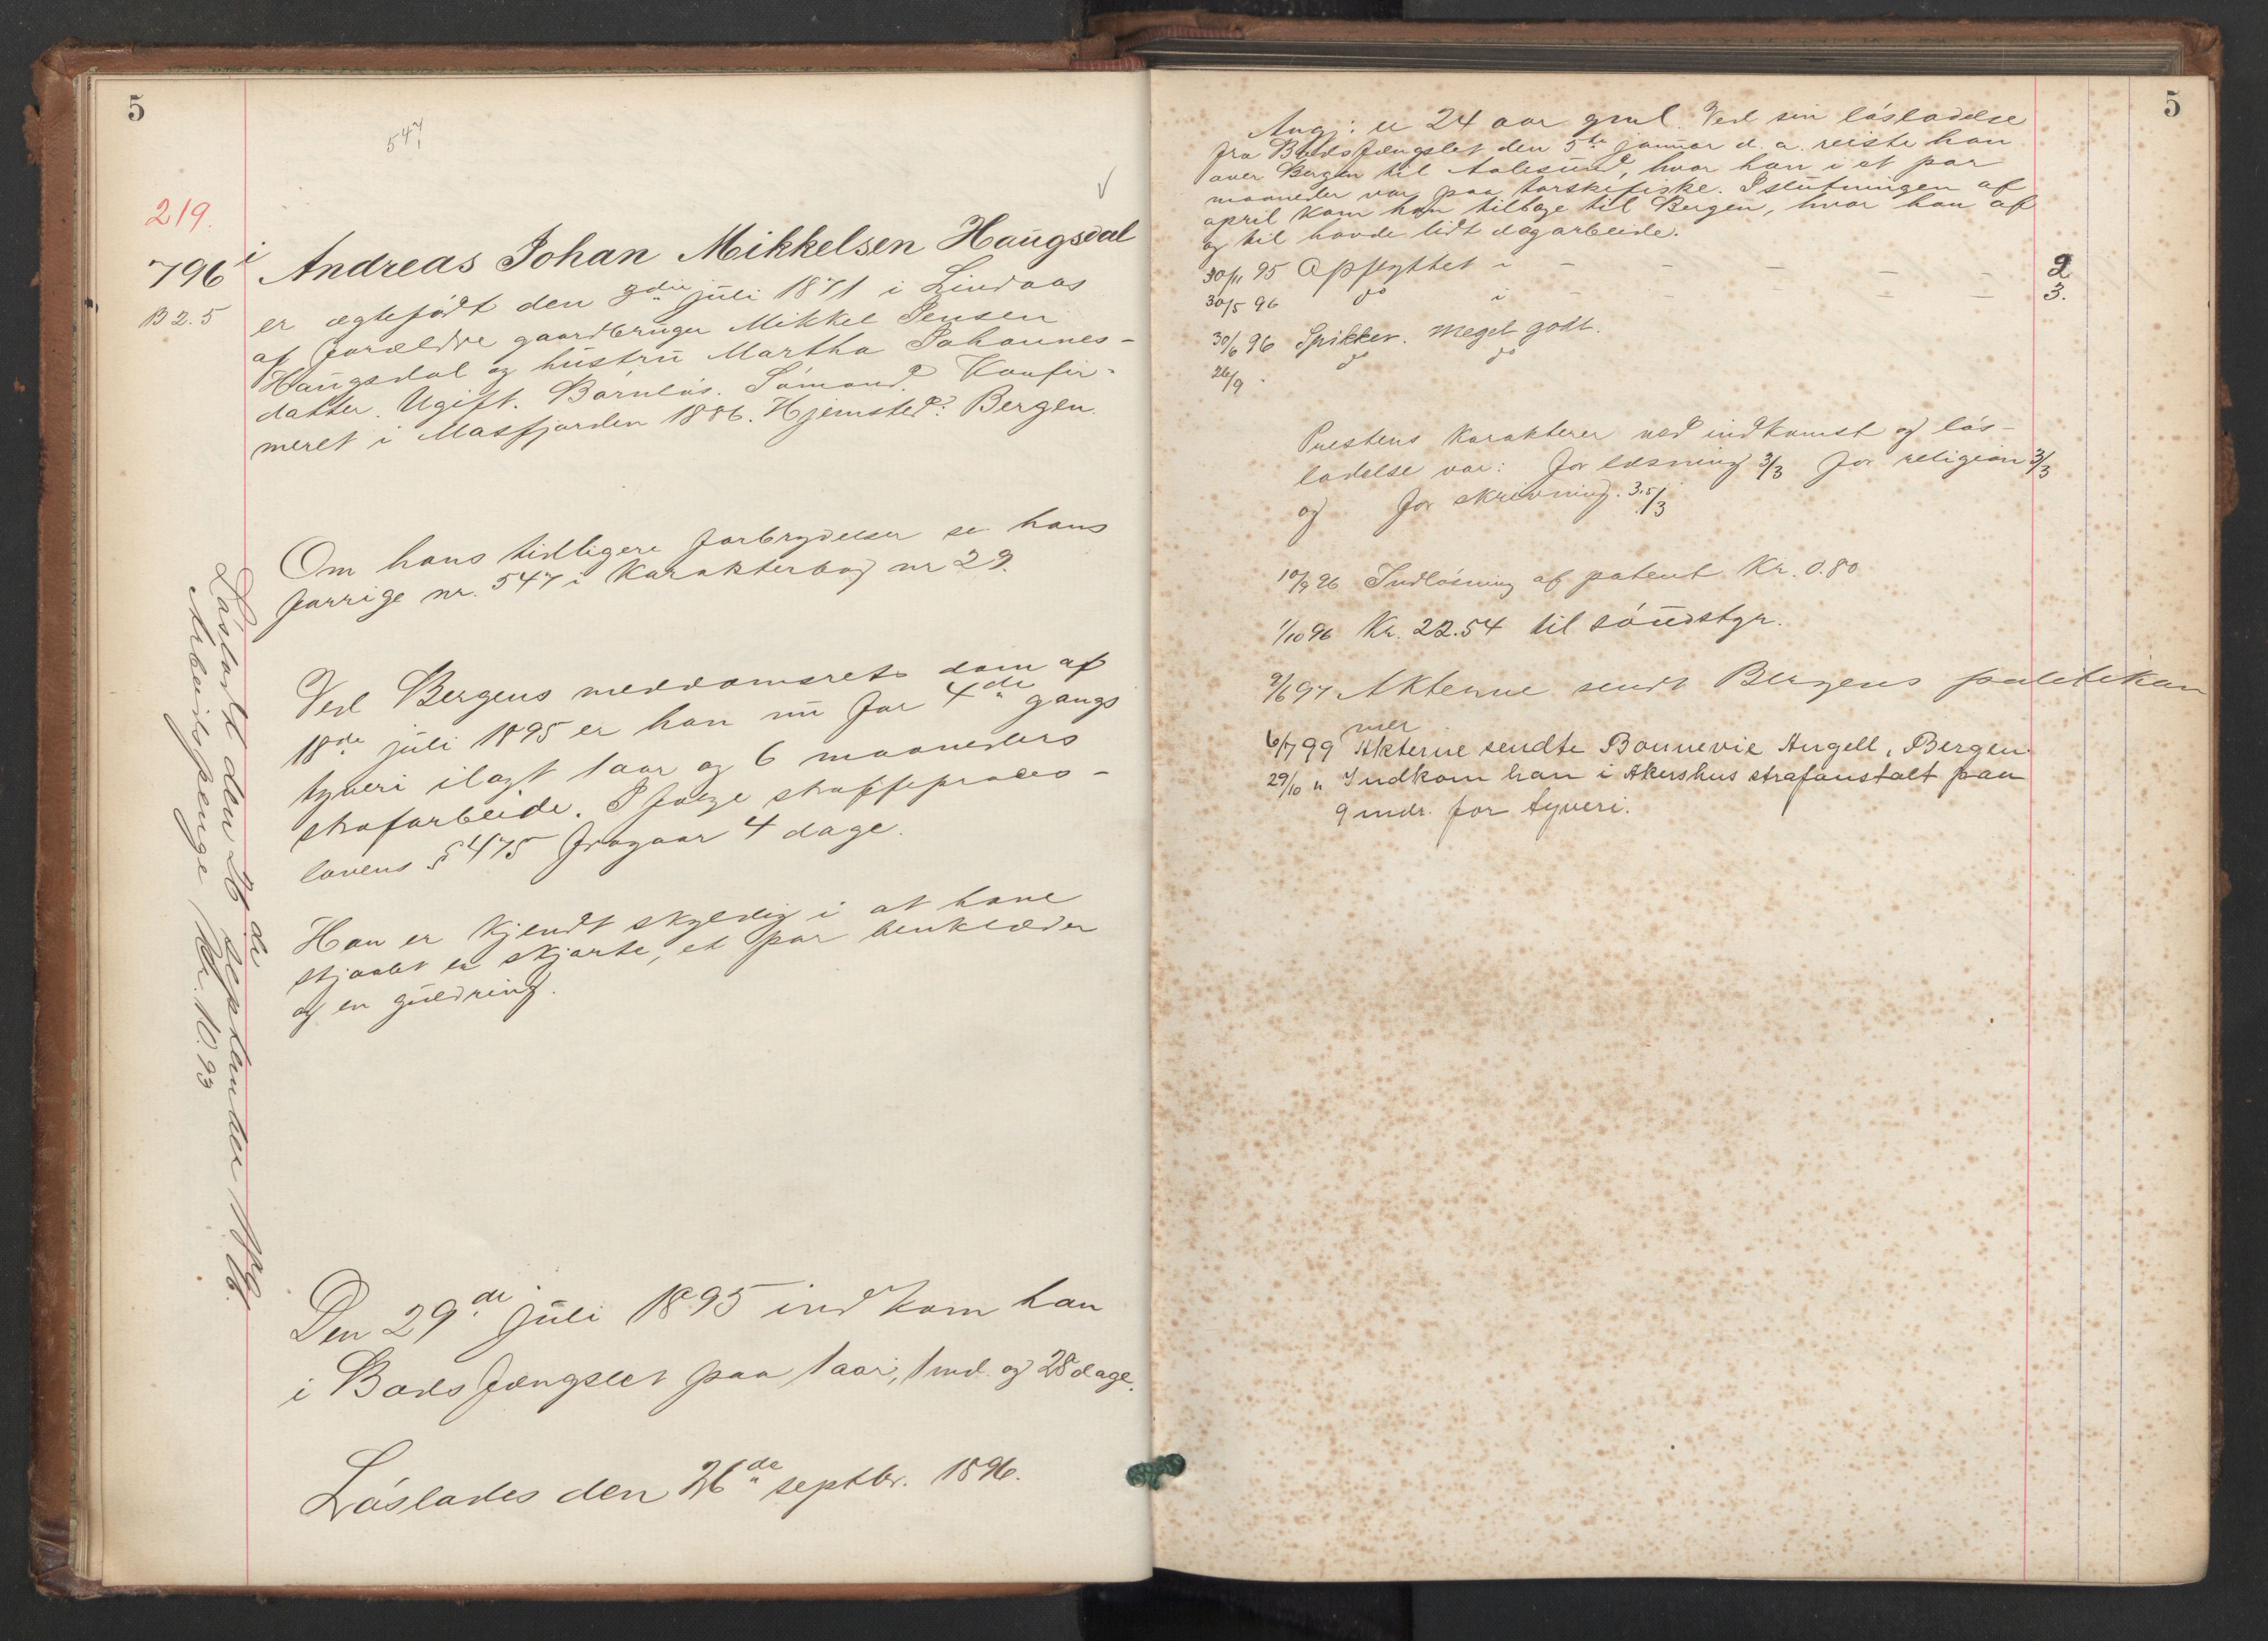 5
547
219.
796 i Andreas Johan Mikkelsen Haugsdal
B 2.5 er ægtefødt den juli 1871 i Lindaas
af forældre gaardbruger Mikkel Jensen
Haugsdal og hustru Martha Johannes-
datter. Ugift. Barnløs. Sømand. Konfir-
meret i Masfjorden 1886. Hjemsted: Bergen.
Om hans tidligere forbrydelser se hans
forrige nr. 547 i Karakterbog nr 29.
Ved Bergens meddomsrets dom af
18de juli 1895 er han nu for 4de gangs
tyveri ilagt 1 aar og 6 maaneders
strafarbeide. I følge straffeproces-
lovens § 475 fragaar 4 dage.
Han er kjendt skyldig i at have
stjaalet en skjorte, et par benklæder
og en guldring.
Den 29de juli 1895 indkom han
i Bodsfængslet paa 1 aar, 1 md. og 28 dage.
Løslades den 26de septbr. 1896.
Løsladt den 26de september 1896.
Arbeidspenge Kr. 10.93
5
Angj: er 24 aar gml. Ved sin løsladelse
fra Bodsfængslet den 5te januar d. a. reiste han
over Bergen til Aalesund, hvor han i et par
maaneder var paa torskefiske. I slutningen af
april kom han tilbage til Bergen, hvor han af
og til havde lidt dagarbeide.
30/11 95 Opflyttet i - - - - - 2
30/5 96 do i - - - - - 3.
30/6 96 Spikker. meget godt.
26/9 - do do
Prestens karakterer ved indkomst og løs-
ladelse var: for læsning 3/3 for religion 3/3
og for skrivning. 3,5/3
10/9 96 Indløsning af patent Kr. 0.80
1/10 96 Kr. 22.54 til søndstyr.
9/6 97 Akterne sendt Bergens politikam
mer
6/7 99 Akterne sendte Bonnevie Angell, Bergen.
29/10 " Indkom han i Akershus strafanstalt paa
9 mdr. for tyveri.